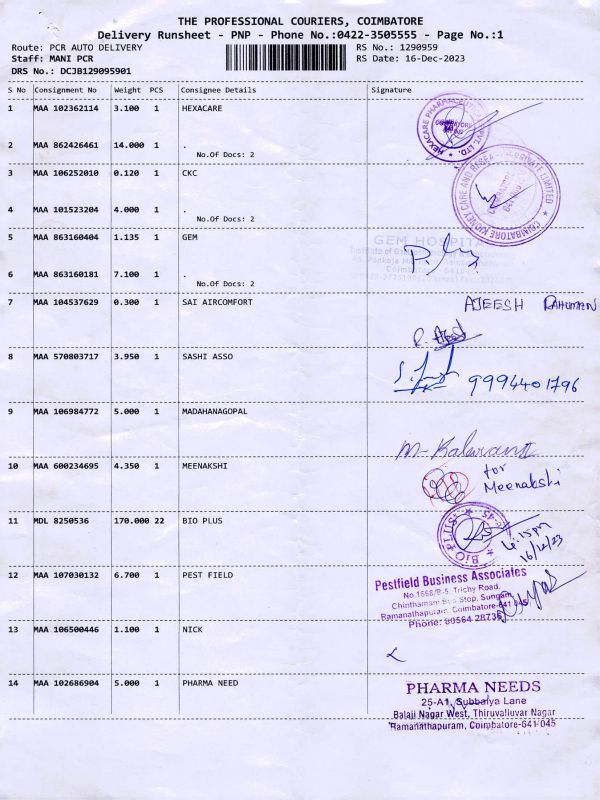 THE PROFESSIONAL COURIERS, COIMBATORE
Delivery Runsheet - PNP - Phone No.:0422-3505555 - Page No.:1
Route: PCR AUTO DELIVERY RS No.: 1290959
Staff: MANI PCR RS Date: 16-Dec-2023
DRS No.: DCJB129095901
S No Consignment No Weight PCS Consignee Details Signature
1 MAA 102362114 3.100 1 HEXACARE
HEXACARE PHARMACEUTICAL PVT. LTD.
2 MAA 862426461 14.000 1 .
No.Of Docs: 2
3 MAA 106252010 0.120 1 CKC
COIMBATORE KIDNEY CARE AND RESEARCH PRIVATE LIMITED
4 MAA 101523204 4.000 1 .
No.Of Docs: 2
5 MAA 863160404 1.135 1 GEM
GEM HOSPITAL
6 MAA 863160181 7.100 1 .
No.Of Docs: 2
7 MAA 104537629 0.300 1 SAI AIRCOMFORT
AJEESH RAHUMAN
8 MAA 570803717 3.950 1 SASHI ASSO
9994401796
9 MAA 106984772 5.000 1 MADAHANAGOPAL
10 MAA 600234695 4.350 1 MEENAKSHI
for
Meenakshi
11 MDL 8250536 170.000 22 BIO PLUS
BIO PLUS
6.15pm
16/12/23
12 MAA 107030132 6.700 1 PEST FIELD
Pestfield Business Associates
No.1668/B-5, Trichy Road,
Chinthamani Bus Stop, Sungam,
Ramanathapuram, Coimbatore-641 045.
Phone: 80564 28736
13 MAA 106500446 1.100 1 NICK
14 MAA 102686904 5.000 1 PHARMA NEED
PHARMA NEEDS
25-A1, Subbaiya Lane
Balaji Nagar West, Thiruvalluvar Nagar
Ramanathapuram, Coimbatore-641 045